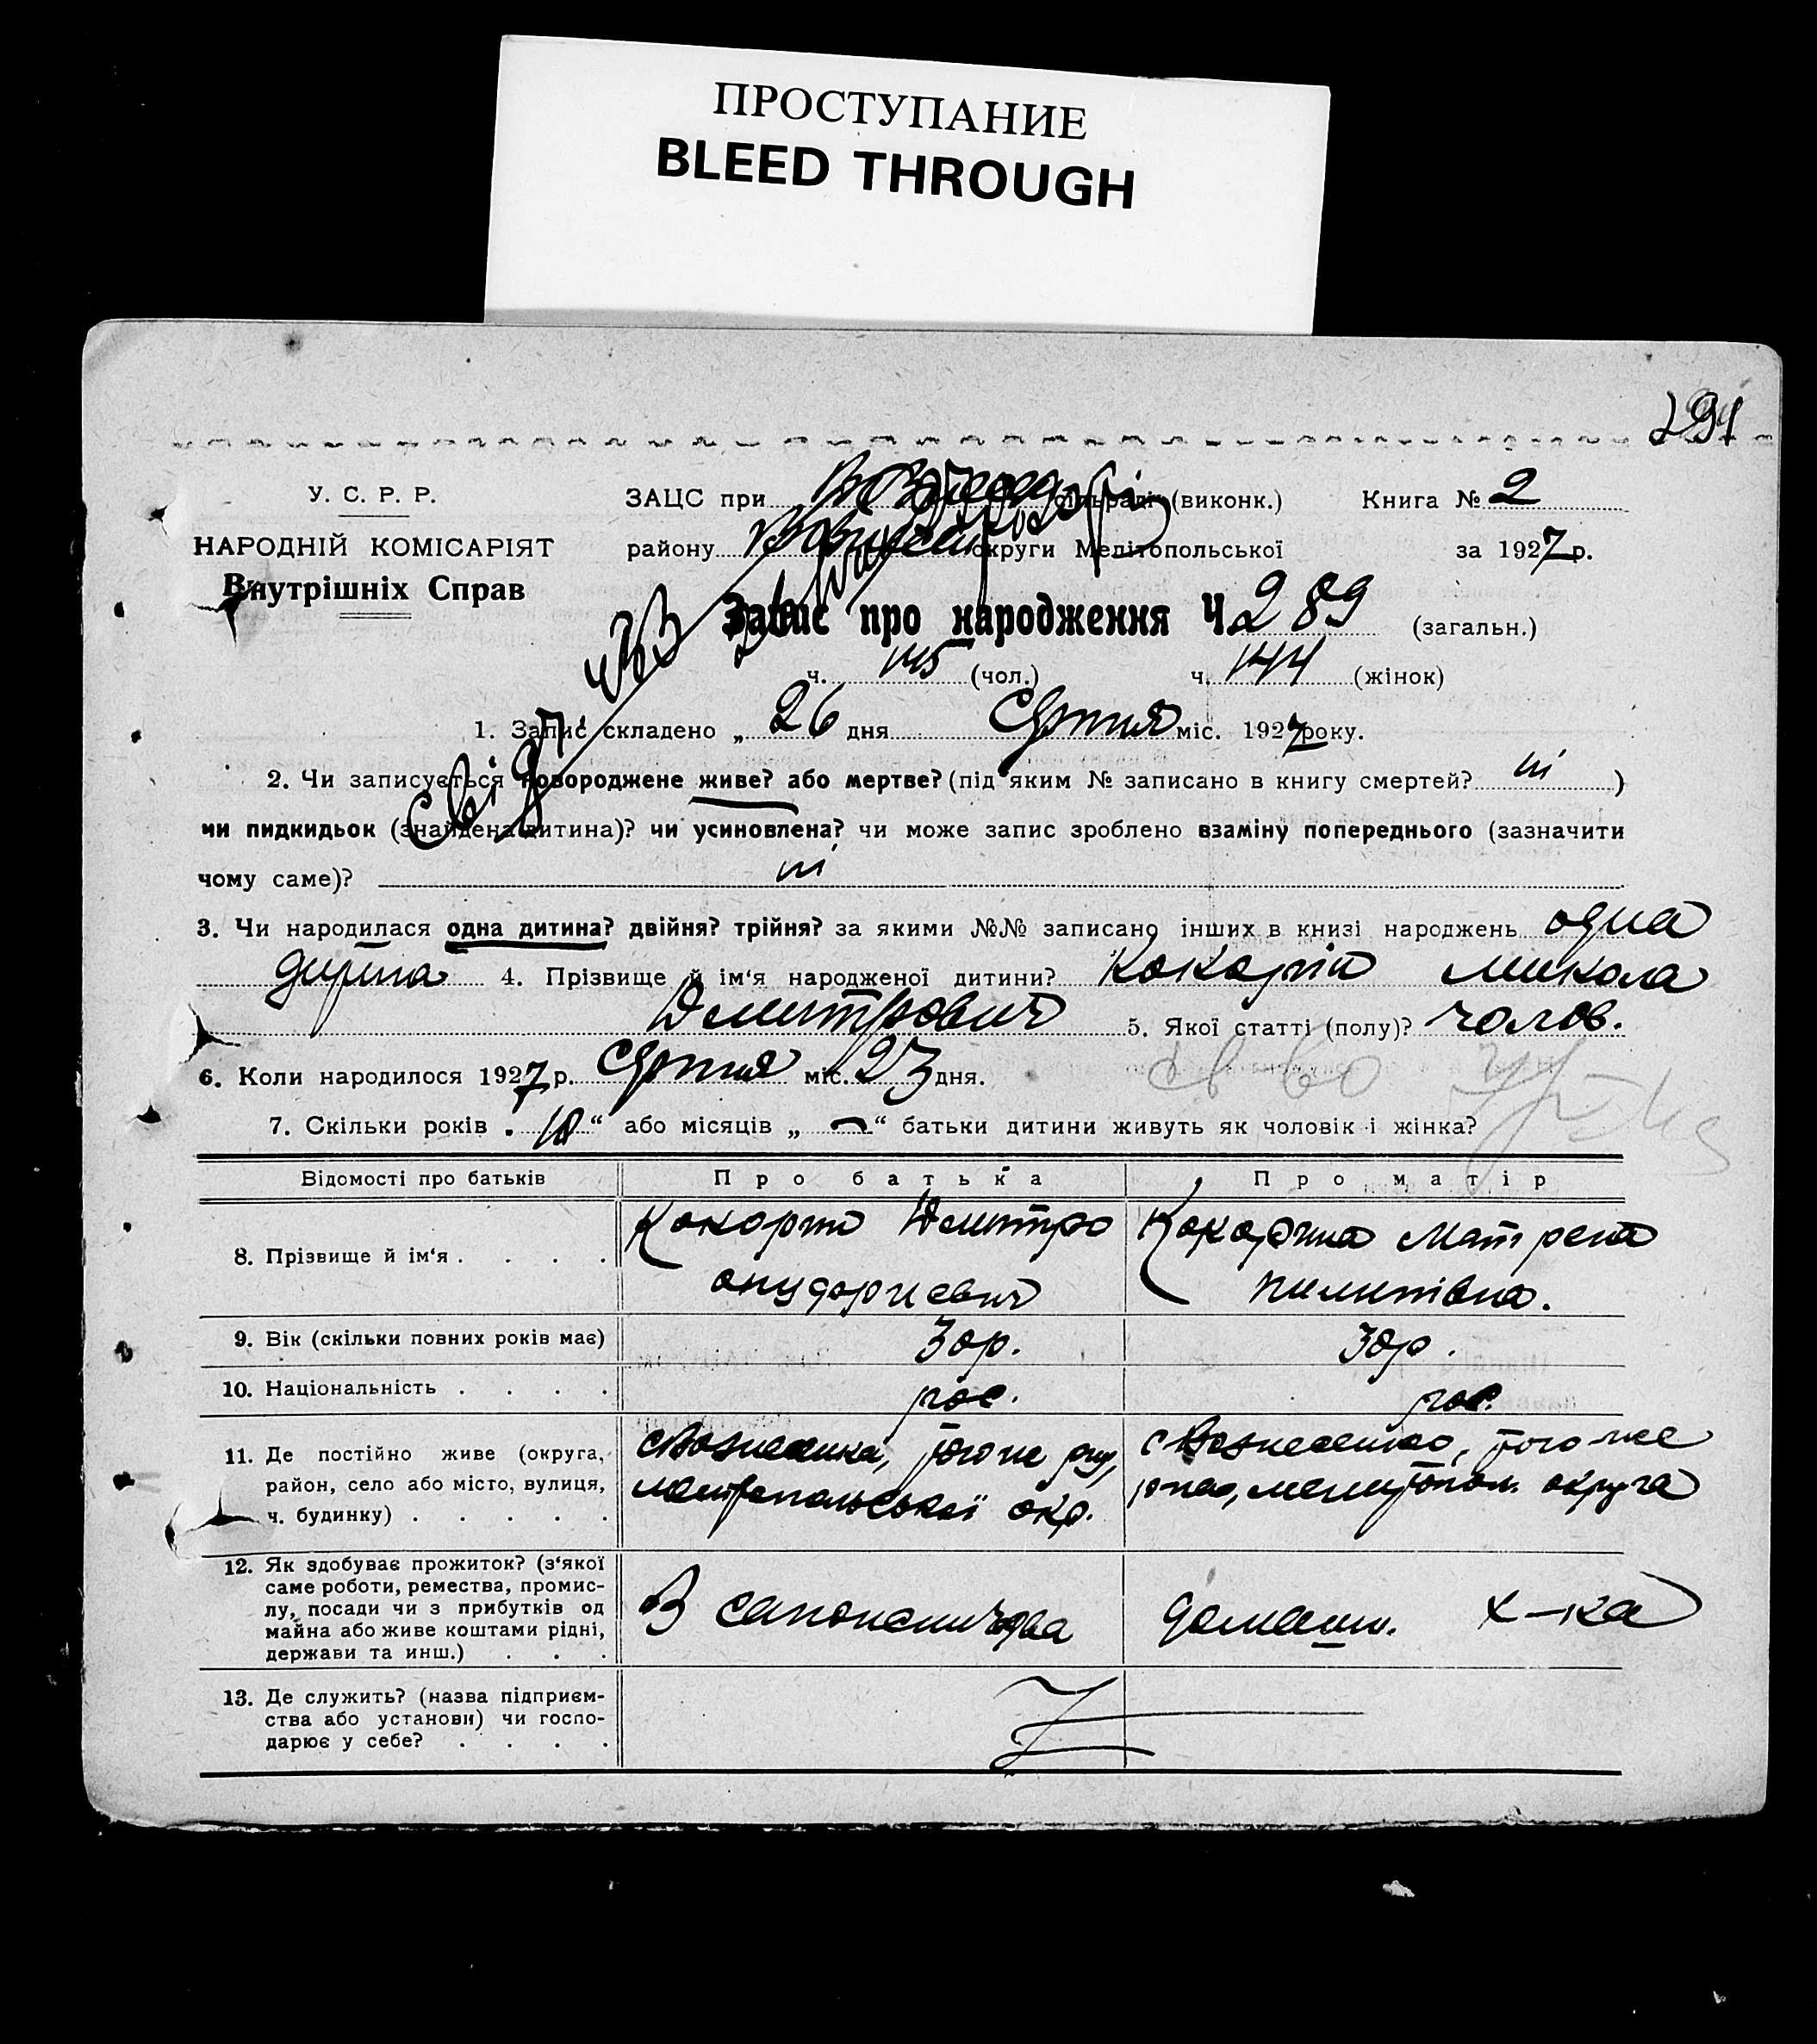 ПРОСТУПАНИЕ
BLEED THROUGH
291
У. С. Р. Р.
НАРОДНІЙ КОМІСАРІЯТ
Внутрішніх Справ
ЗАЦС при сільраді (виконк.) Книга № 2
району округи Мелітопольської за 1927 р.
Запис про народження Ч. 289 (загальн.)
ч. 145 (чол.) ч. 144 (жінок)
1. Запис складено „ 26 дня Серпня міс. 1927 року.
2. Чи записується новороджене живе? або мертве? (під яким № записано в книгу смертей? ні )
чи пидкидьок (знайдена дитина)? чи усиновлена? чи може запис зроблено взаміну попереднього (зазначити
чому саме)? ні
3. Чи народилася одна дитина? двійня? трійня? за якими №№ записано інших в книзі народжень одна
дитина 4. Прізвище й ім‘я народженої дитини? Кокорін Микола
Дмитрович 5. Якої статті (полу)? чолов.
6. Коли народилося 1927 р. Серпня міс. 23 дня.
7. Скільки років „ 10 “ або місяців „ — “ батьки дитини живуть як чоловік і жінка?
Відомості про батьків Про батька Про матір
8. Прізвище й ім‘я . . . . Кокорін Дмитро Кокоріна Матрена
Пилипівна.
9. Вік (скільки повних років має) 30р. 30р.
10. Національність . . . . рос. рос.
11. Де постійно живе (округа,
район, село або місто, вулиця,
ч. будинку) . . . . .
с Вознесенка, того же
Мелітопольської окр.
с Вознесенка, того же
р-на, Мелітопол. округа
12. Як здобуває прожиток? (з‘якої
саме роботи, ремества, промис-
лу, посади чи з прибутків од
майна або живе коштами рідні,
держави та инш.) . . .
В домашн. х-ка
13. Де служить? (назва підприєм-
ства або установи) чи госпо-
дарює у себе? . . . .